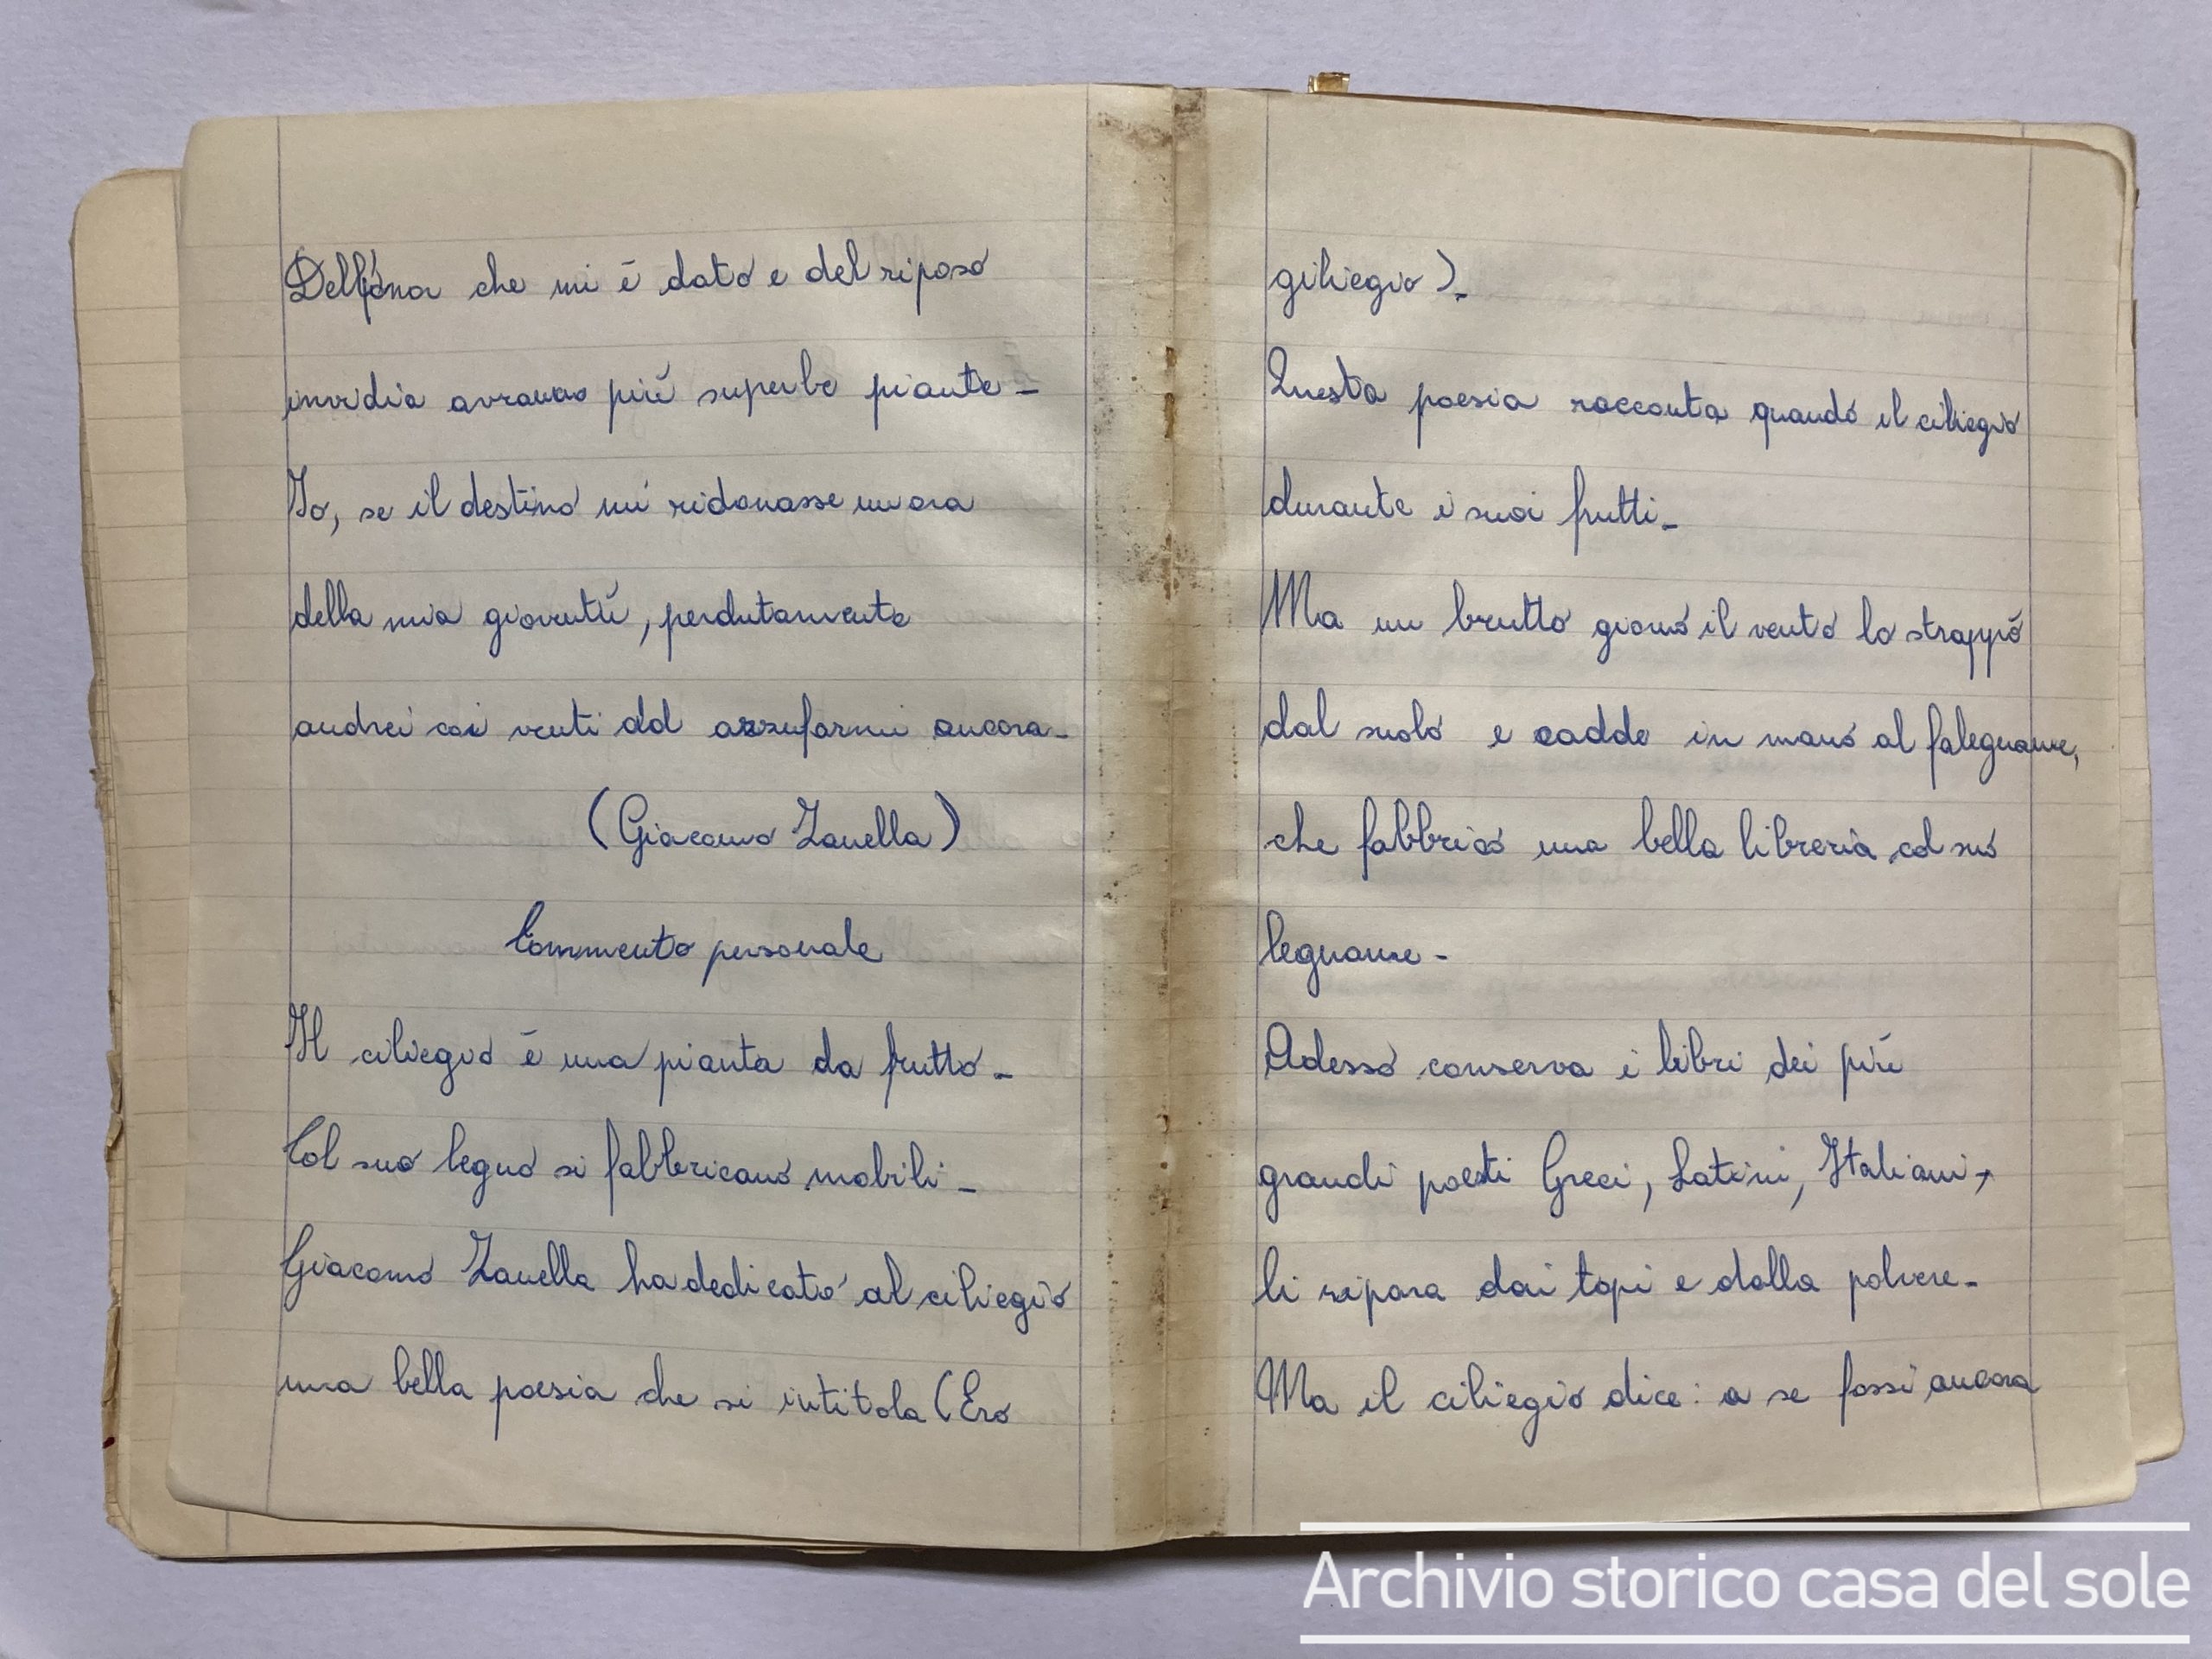 Dell'ónor che mi é dato e del riposo
invidia avranno piú superbe piante -
Io, se il destino mi ridonasse un ora
della mia gioventú, perdutamente
andrei coi venti ad azzufarmi ancora -
(Giacomo Zanella)
Commento personale
Il ciliegio é una pianta da frutto -
Col suo legno si fabbricano mobili -
Giacomo Zanella ha dedicato al ciliegio
una bella poesia che si intitola (Ero
giliegio) -
Questa poesia racconta quando il ciliegio
durante i suoi frutti -
Ma un brutto giorno il vento lo strappó
dal suolo e cadde in mano al falegname,
che fabbricó una bella libreria col suo
legname -
Adesso conserva i libri dei piú
grandi poeti Greci, Latini, Italiani,
li ripara dai topi e dalla polvere -
Ma il ciliegio dice: a se fossi ancora
Archivio storico casa del sole